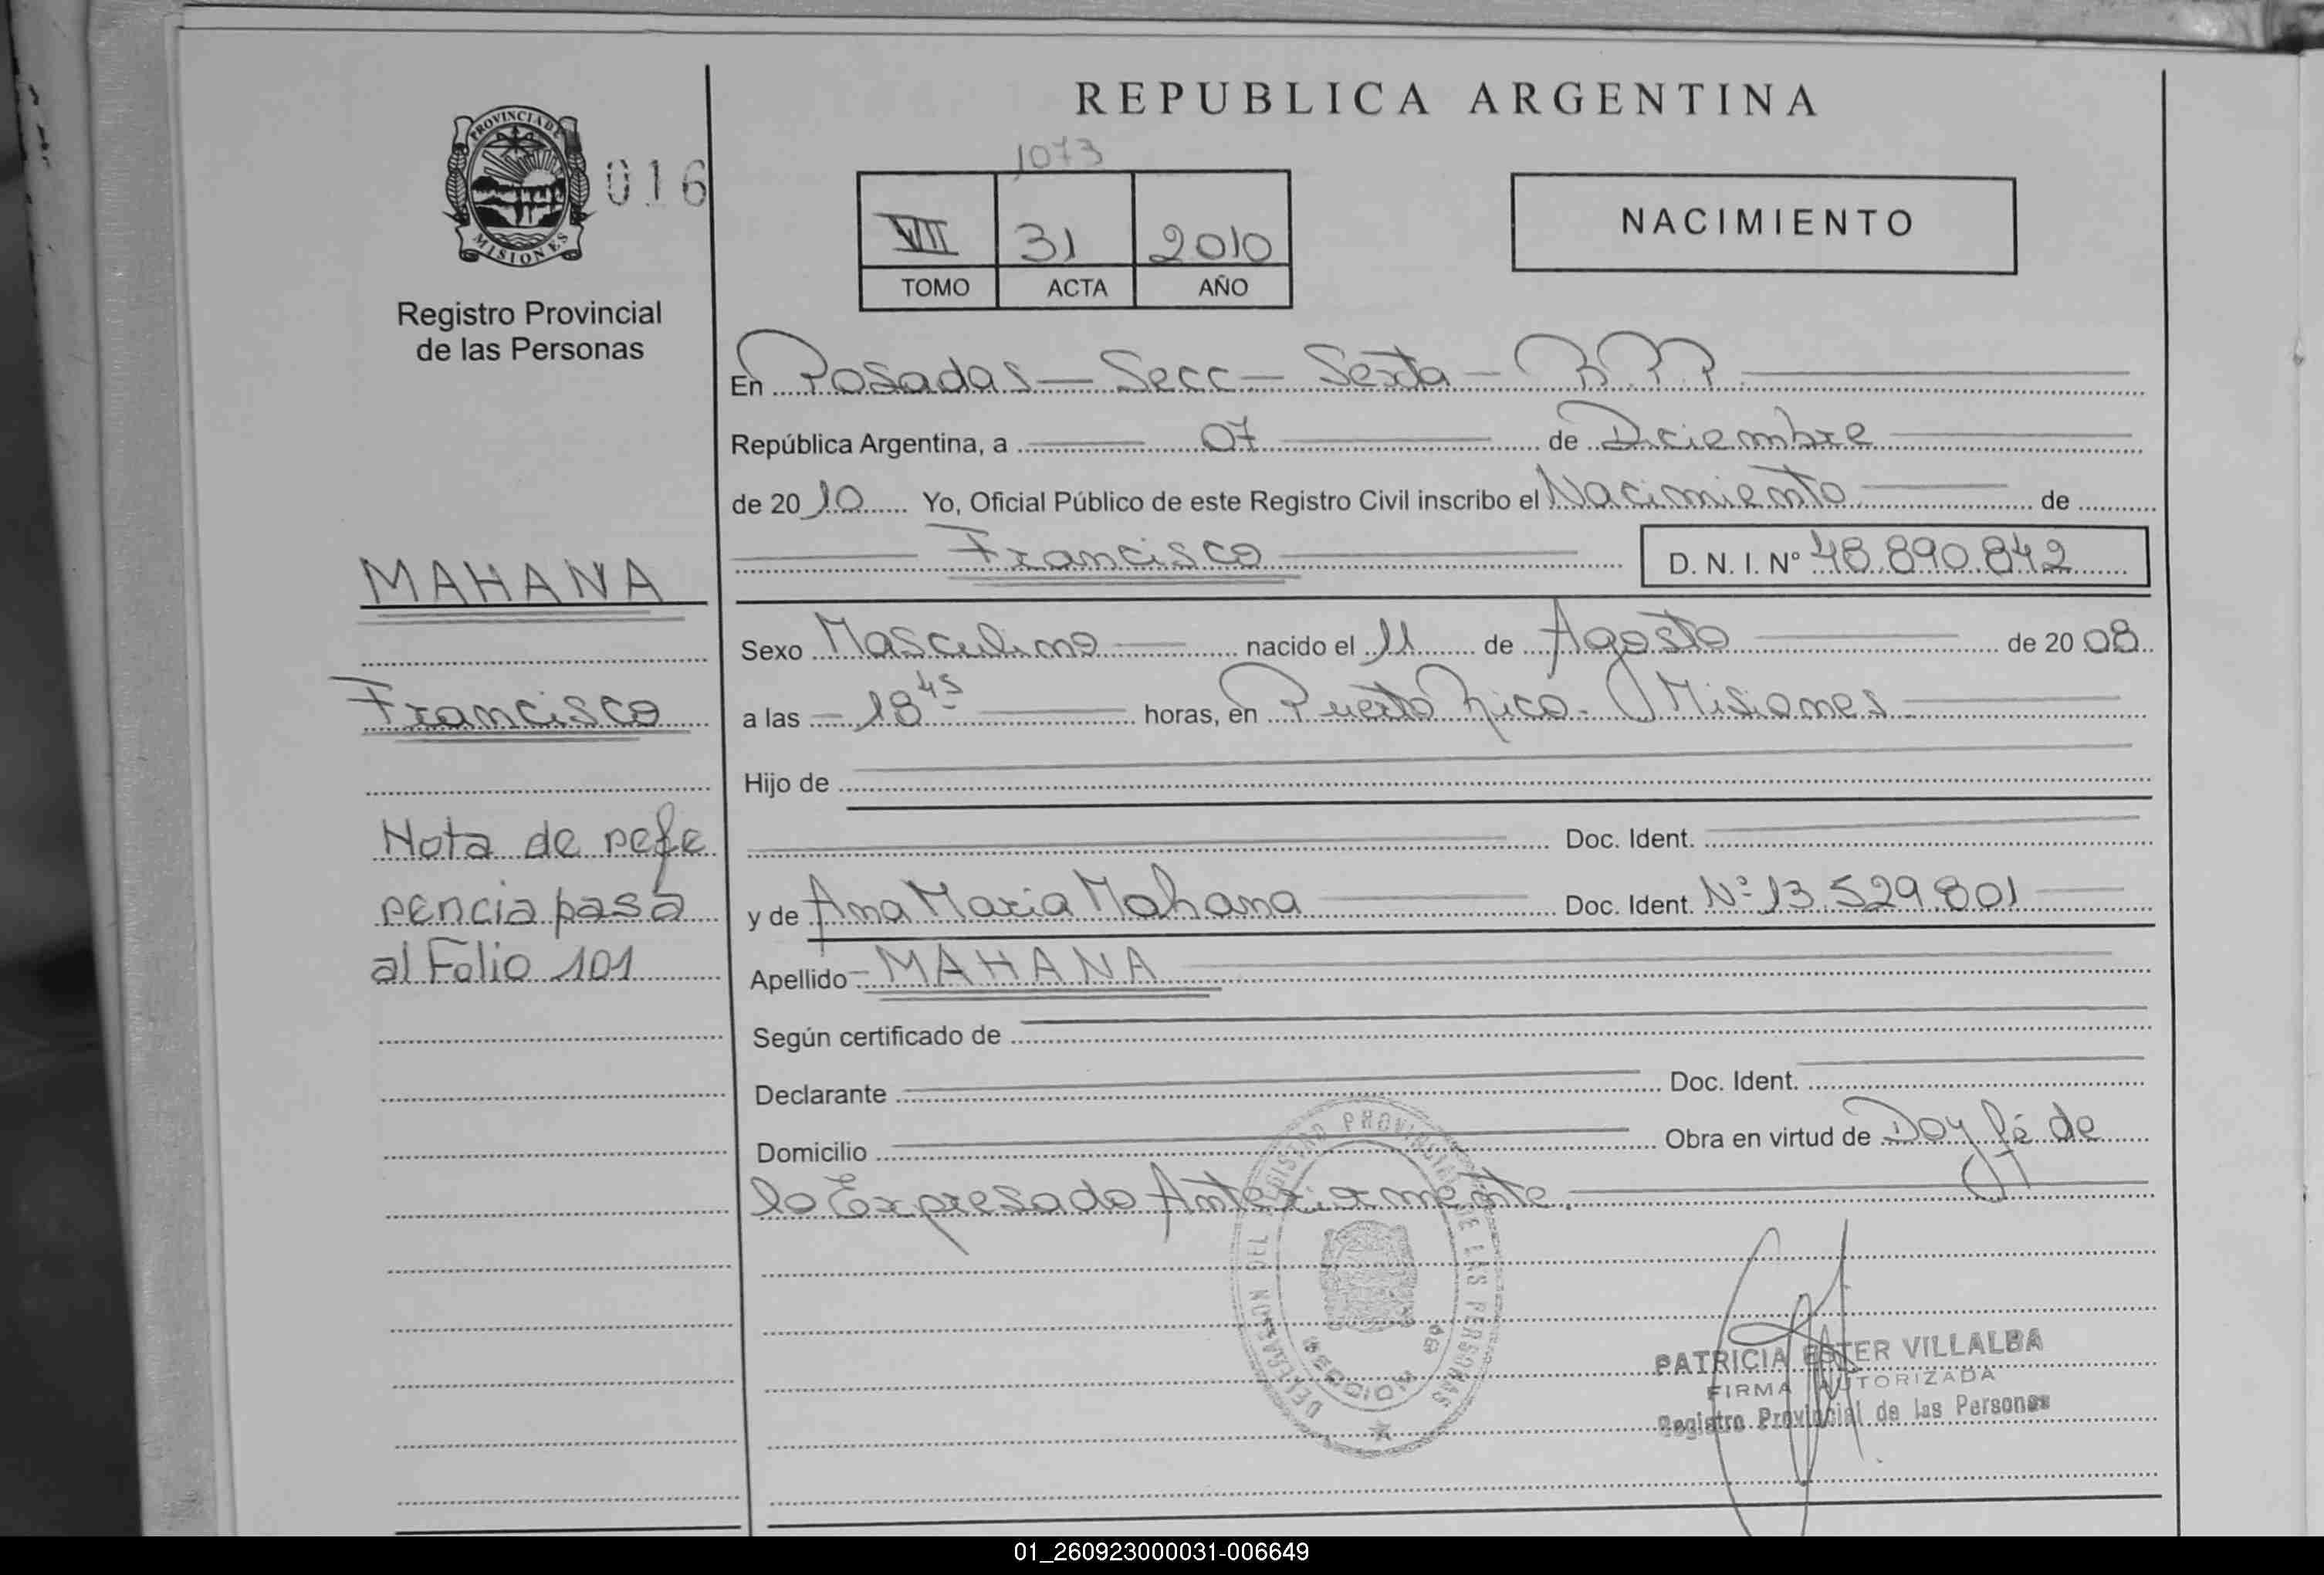 REPUBLICA ARGENTINA
PROVINCIA DE
MISIONES
016
1073
VII 31 2010
TOMO ACTA AÑO
NACIMIENTO
Registro Provincial
de las Personas
En Posadas - Secc - Sexta - R.P.P.
República Argentina, a 07 de Diciembre
de 2010 Yo, Oficial Público de este Registro Civil inscribo el Nacimiento de
Francisco D. N. I. Nº 48.890.842
Sexo Masculino nacido el 11 de Agosto de 2008
a las - 18 45 horas, en Puerto Rico - Misiones
Hijo de
Doc. Ident.
y de Ana Maria Mahana Doc. Ident. Nº 13.529.801
Apellido - MAHANA
Según certificado de
Declarante Doc. Ident.
Domicilio Obra en virtud de Doy fé de
lo Expresado Anteriormente.
MAHANA
Francisco
Nota de refe
rencia pasa
al Folio 101
DELEGACION DEL REGISTRO PROVINCIAL DE LAS PERSONAS
SECCION 6ª
PATRICIA ESTER VILLALBA
FIRMA AUTORIZADA
Registro Provincial de las Personas
01_260923000031-006649